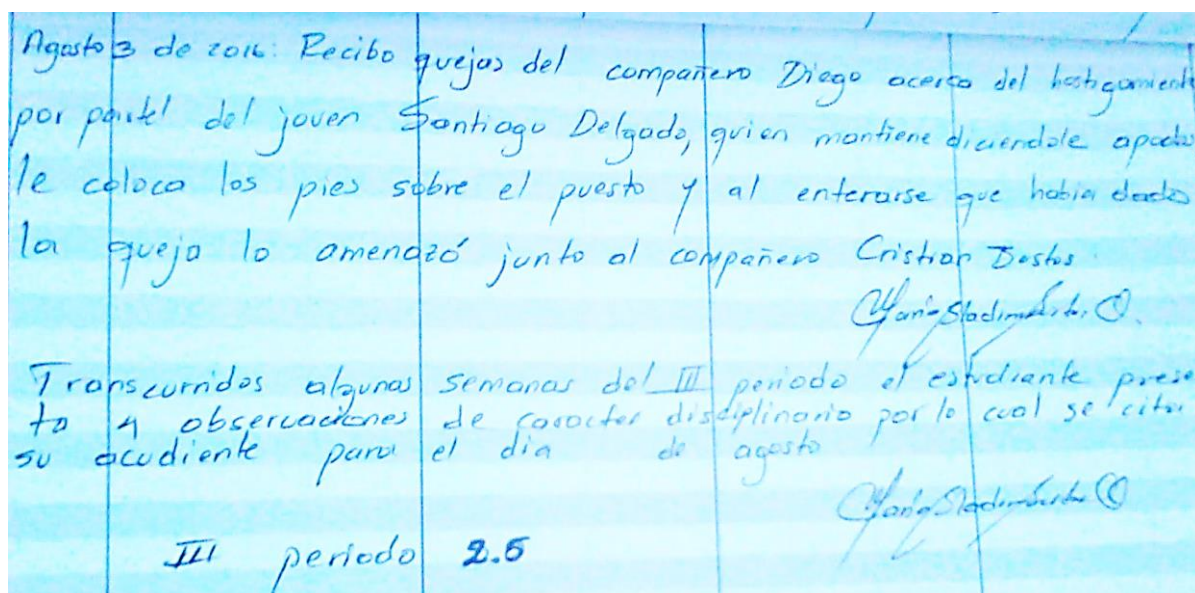 Agosto 3 de 2016: Recibo quejas del compañero Diego acerca del hostigamient
por parte del joven Santiago Delgado, quien mantiene diciendole apodo
le coloca los pies sobre el puesto y al enterarse que habia dado
la queja lo amenazó junto al compañero Cristian Bastos.
Transcurridos algunas semanas del III periodo el estudiante prese
ta 4 observaciones de caracter disciplinario por lo cual se cita
su acudiente para el dia de agosto
III periodo 2.5